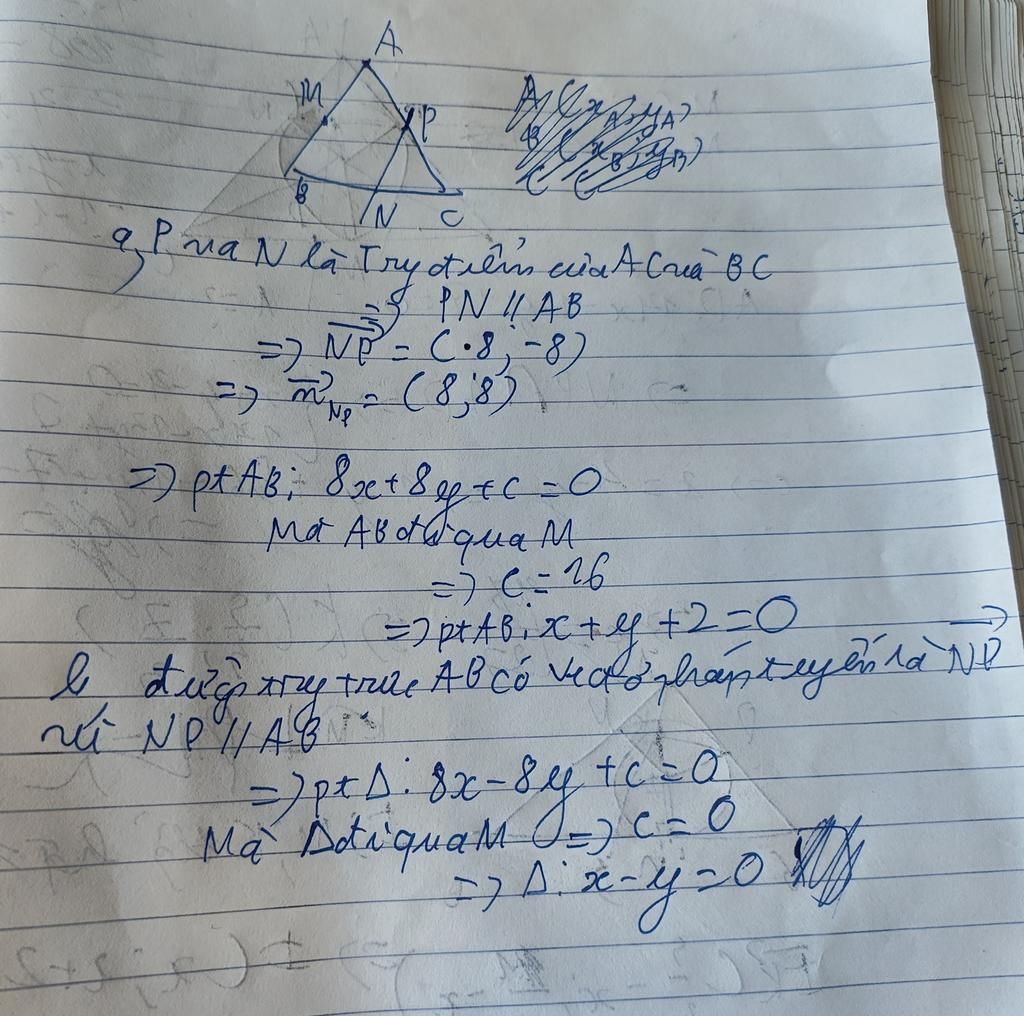 A
M
P
B
N
C
a, P và N là Trg điểm của AC và BC
=> PN // AB
=> NP = (8, -8)
=> n NP = (8; 8)
=> pt AB: 8x + 8y + c = 0
Mà AB đi qua M
=> C = 16
=> pt AB: x + y + 2 = 0
b đường trg trực AB có vectơ pháp tuyến là NP
vì NP // AB
=> pt Δ: 8x - 8y + c = 0
Mà Δ đi qua M => C = 0
=> Δ: x - y = 0